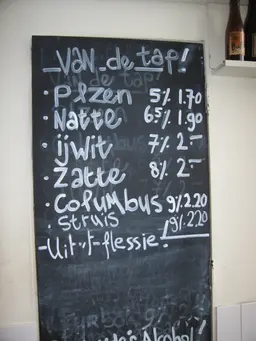 Van de tap!
· Plzen 5% 1.70
· Natte 6.5% 1.90
· ijwit 7% 2.-
· Zatte 8% 2.-
· Columbus 9% 2.20
· Struis 9% 2.20
- Uit 't flessie:
Alcohol!